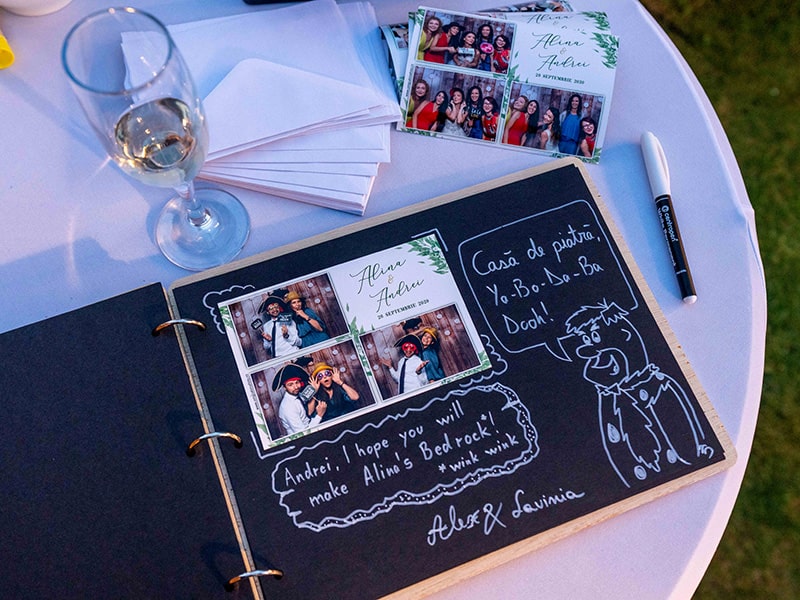 Alina
&
Andrei
26 SEPTEMBRIE 2020
Alina
&
Andrei
26 SEPTEMBRIE 2020
Casă de piatră,
Ya-Ba-Da-Ba
Dooh!
Andrei, I hope you will
make Alina's Bedrock*!
*wink wink
Alex & Lavinia
centropen